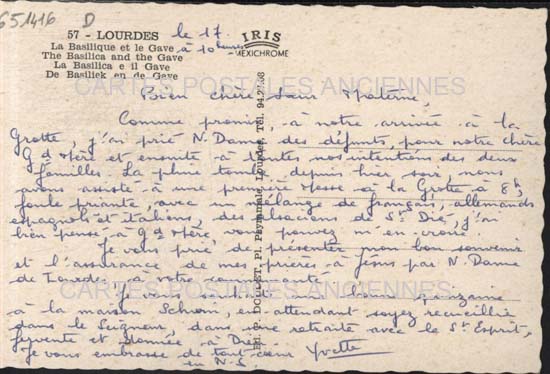 651416 D
57 - LOURDES
La Basilique et le Gave
The Basilica and the Gave
La Basilica e il Gave
De Basiliek en de Gave
IRIS
MEXICHROME
le 17.
à 10 heures
CARTES POSTALES ANCIENNES
Bien chère Sœur Materne,
Comme promis, à notre arrivée à la
Grotte, j'ai prié N. Dame des défunts, pour notre chère
Gd Mère et ensuite à toutes nos intentions des deux
familles. La pluie tombe depuis hier soir, nous
avons assisté à une première Messe à la Grotte à 8h,
foule priante, avec un mélange de français, allemands
espagnols et italiens, des alsaciens de St Dié, j'ai
bien pensé à Gd Mère, vous pouvez m'en croire.
Je vous prie, de présenter mon bon souvenir
et l'assurance de mes prières à Jésus par N. Dame
de Lourdes, à votre communauté.
Je vous souhaite un bon
à la maison en attendant soyez recueillie
dans le Seigneur, dans une retraite avec le St Esprit,
fervente et donnée à Dieu.
Je vous embrasse de tout cœur Yvette
en N.S.
CARTES POSTALES ANCIENNES
Ed. P. DOUCET, Pl. Peyramale, Lourdes, Tél. 94.27.08